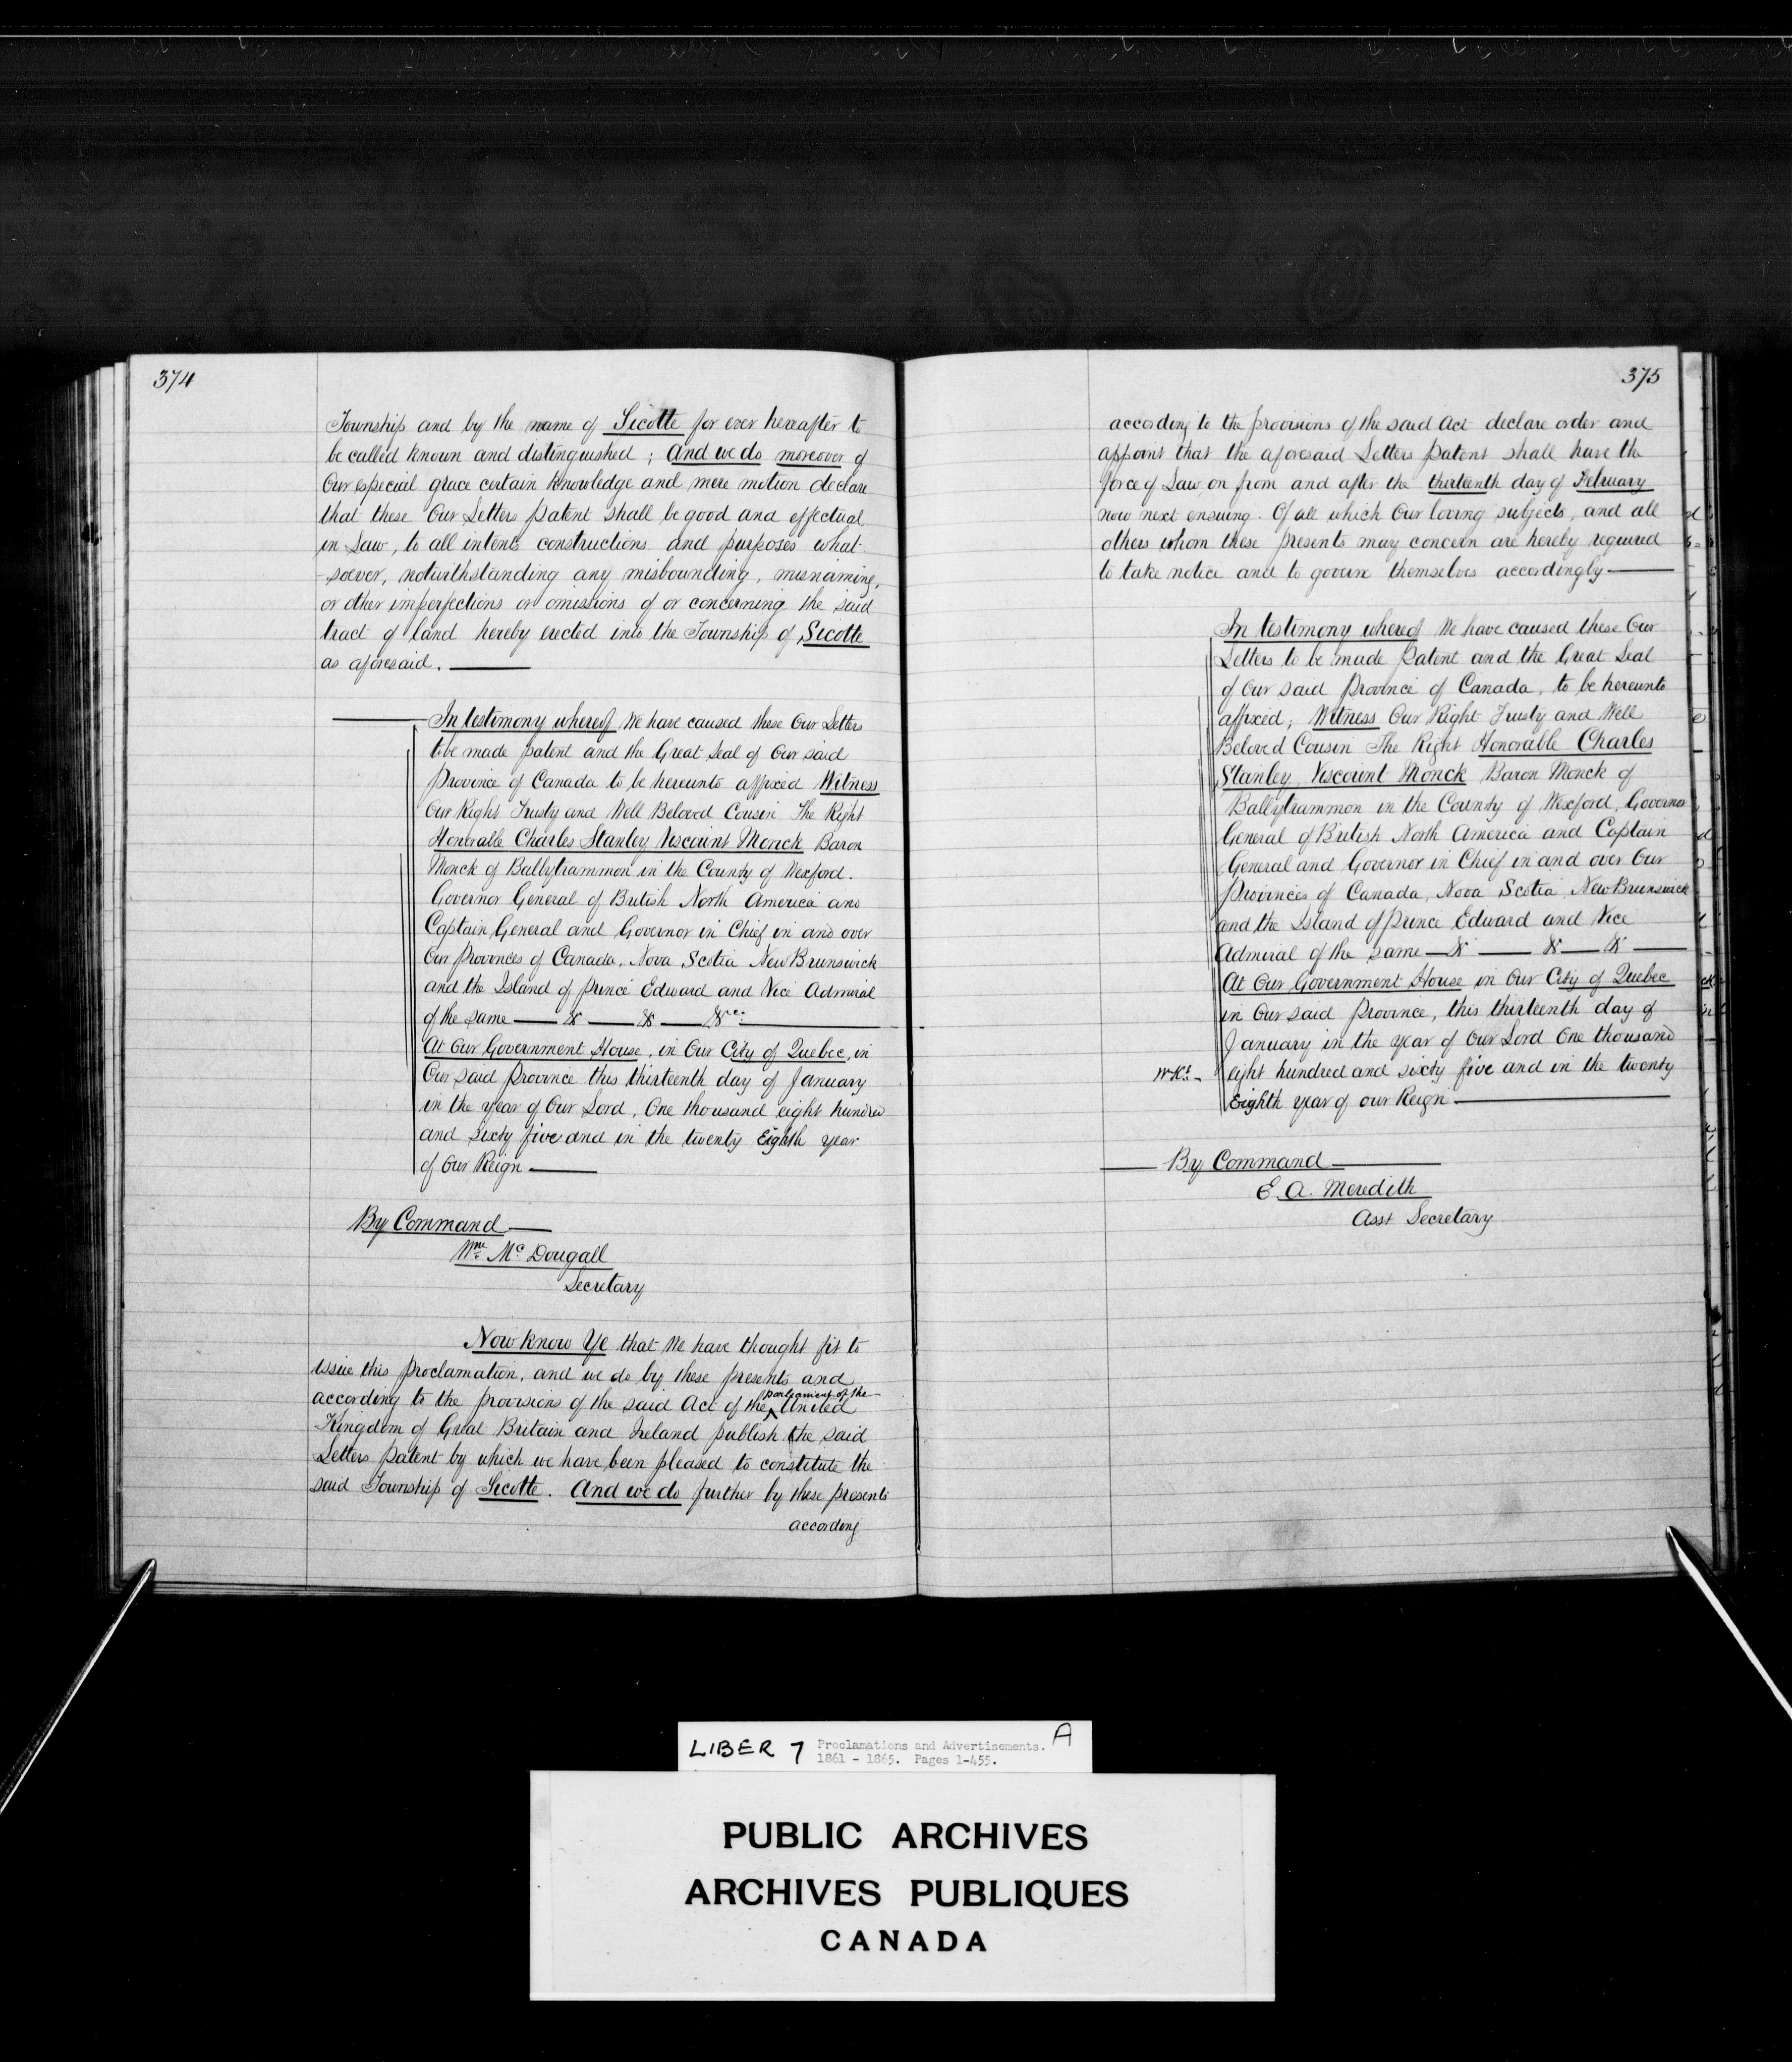 374
Township and by the name of Sicotte for ever hereafter to
be called known and distinguished ; And we do moreover of
Our especial grace certain knowledge and mere motion declare
that these Our Letters Patent shall be good and effectual
in Law, to all intents constructions and purposes what-
-soever, notwithstanding any misbounding, misnaming,
or other imperfections or omissions of or concerning the said
tract of land hereby erected into the Township of Sicotte
as aforesaid.
In testimony whereof We have caused these Our Letters
to be made patent and the Great Seal of Our said
Province of Canada to be hereunto affixed Witness
Our Right Trusty and Well Beloved Cousin The Right
Honorable Charles Stanley Viscount Monck Baron
Monck of Ballytrammon in the County of Wexford.
Governor General of British North America and
Captain General and Governor in Chief in and over
Our Provinces of Canada, Nova Scotia New Brunswick
and the Island of Prince Edward and Vice Admiral
of the same — & — & — &c:
At Our Government House, in Our City of Quebec, in
Our said Province this thirteenth day of January
in the year of Our Lord, One thousand eight hundred
and sixty five and in the twenty Eighth year
of Our Reign —
By Command —
Wm McDougall
Secretary
Now know Ye that We have thought fit to
issue this Proclamation, and we do by these presents and
according to the provisions of the said Act of the parliament of the United
Kingdom of Great Britain and Ireland publish the said
Letters Patent by which we have been pleased to constitute the
said Township of Sicotte. And we do further by these presents
according
375
according to the provisions of the said Act declare order and
appoint that the aforesaid Letters Patent shall have the
force of Law, on from and after the thirteenth day of February
now next ensuing. Of all which Our loving subjects, and all
others whom these presents may concern are hereby required
to take notice and to govern themselves accordingly —
In testimony whereof We have caused these Our
Letters to be made Patent and the Great Seal
of Our said Province of Canada, to be hereunto
affixed; Witness Our Right Trusty and Well
Beloved Cousin The Right Honorable Charles
Stanley, Viscount Monck Baron Monck of
Ballytrammon in the County of Wexford, Governor
General of British North America and Captain
General and Governor in Chief in and over Our
Provinces of Canada, Nova Scotia New Brunswick
and the Island of Prince Edward and Vice
Admiral of the same — & — & — & —
At Our Government House in Our City of Quebec
in Our said Province, this thirteenth day of
January in the year of Our Lord One thousand
eight hundred and sixty five and in the twenty
Eighth year of our Reign —
By Command —
E. A. Meredith
Asst Secretary
LIBER 7 Proclamations and Advertisements. A
1861 - 1865. Pages 1-455.
PUBLIC ARCHIVES
ARCHIVES PUBLIQUES
CANADA